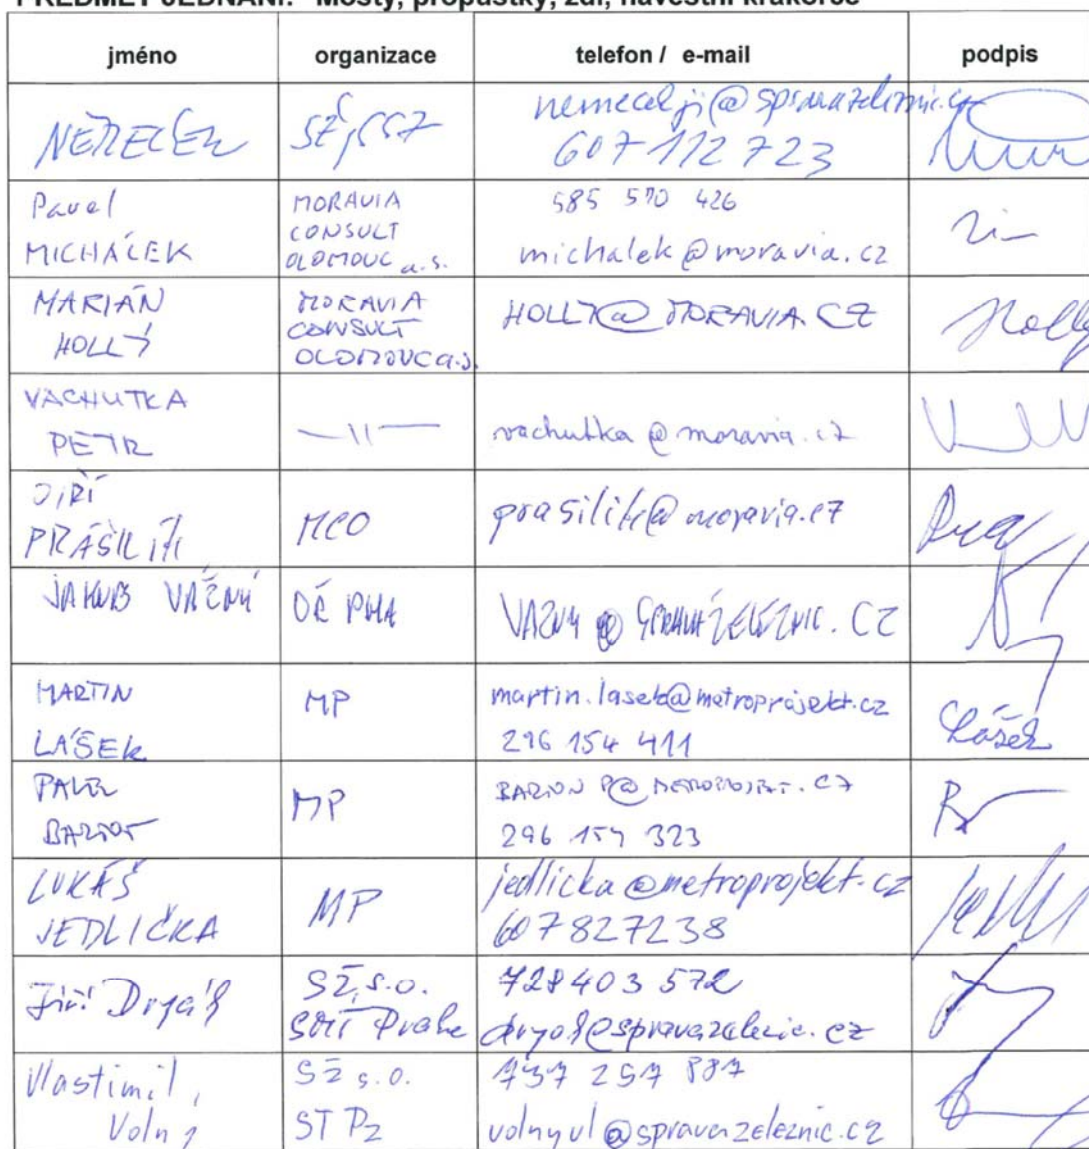 PŘEDMĚT JEDNÁNÍ: Mosty, propustky, zdi, návěstní krakorce
jméno organizace telefon / e-mail podpis
607 112 723
Pavel
MICHÁLEK
MORAVIA
CONSULT
OLOMOUC a.s.
585 570 426
michalek@moravia.cz
MARIÁN
HOLLÝ
MORAVIA
CONSULT
OLOMOUC a.s.
HOLLY@MORAVIA.CZ
Holly
VACHUTKA
PETR
—11—
vachutka@moravia.cz
JIŘÍ
PRÁŠILÍK
MCO
prasilik@moravia.cz
JAKUB VÁŽNÝ
OŘ PHA
VAZNY@SPRAVAZELEZNIC.CZ
MARTIN
LÁŠEK
MP
martin.lasek@metroprojekt.cz
296 154 411
Lášek
PAVEL
MP
296 154 323
LUKÁŠ
JEDLIČKA
MP
jedlicka@metroprojekt.cz
607827238
Jiří
SŽ, s.o.
Praha
728403 572
Vlastimil
Volný
SŽ s.o.
737 257 887
volnyvl@spravazeleznic.cz